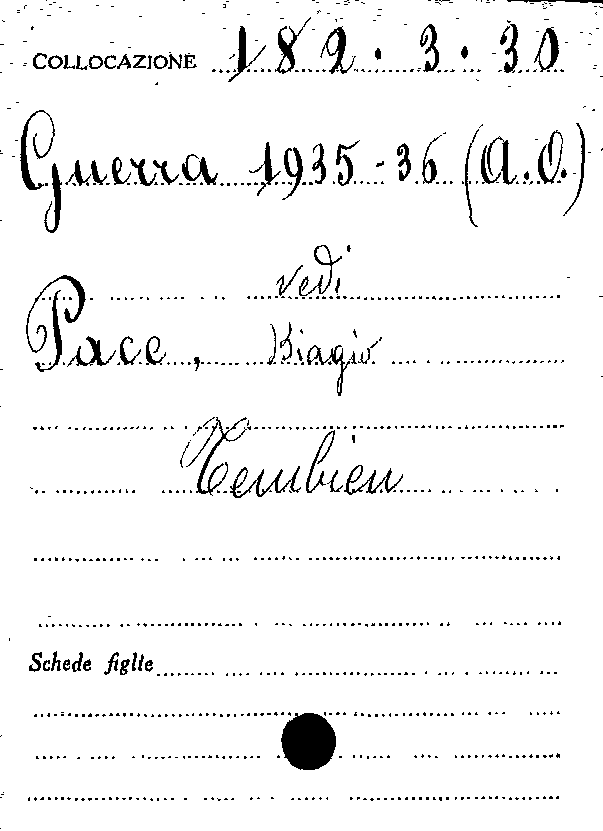 COLLOCAZIONE 182.3.30
Guerra 1935-36 (A.O.)
vedi
Pace, Biagio
Tembien
Schede figlie